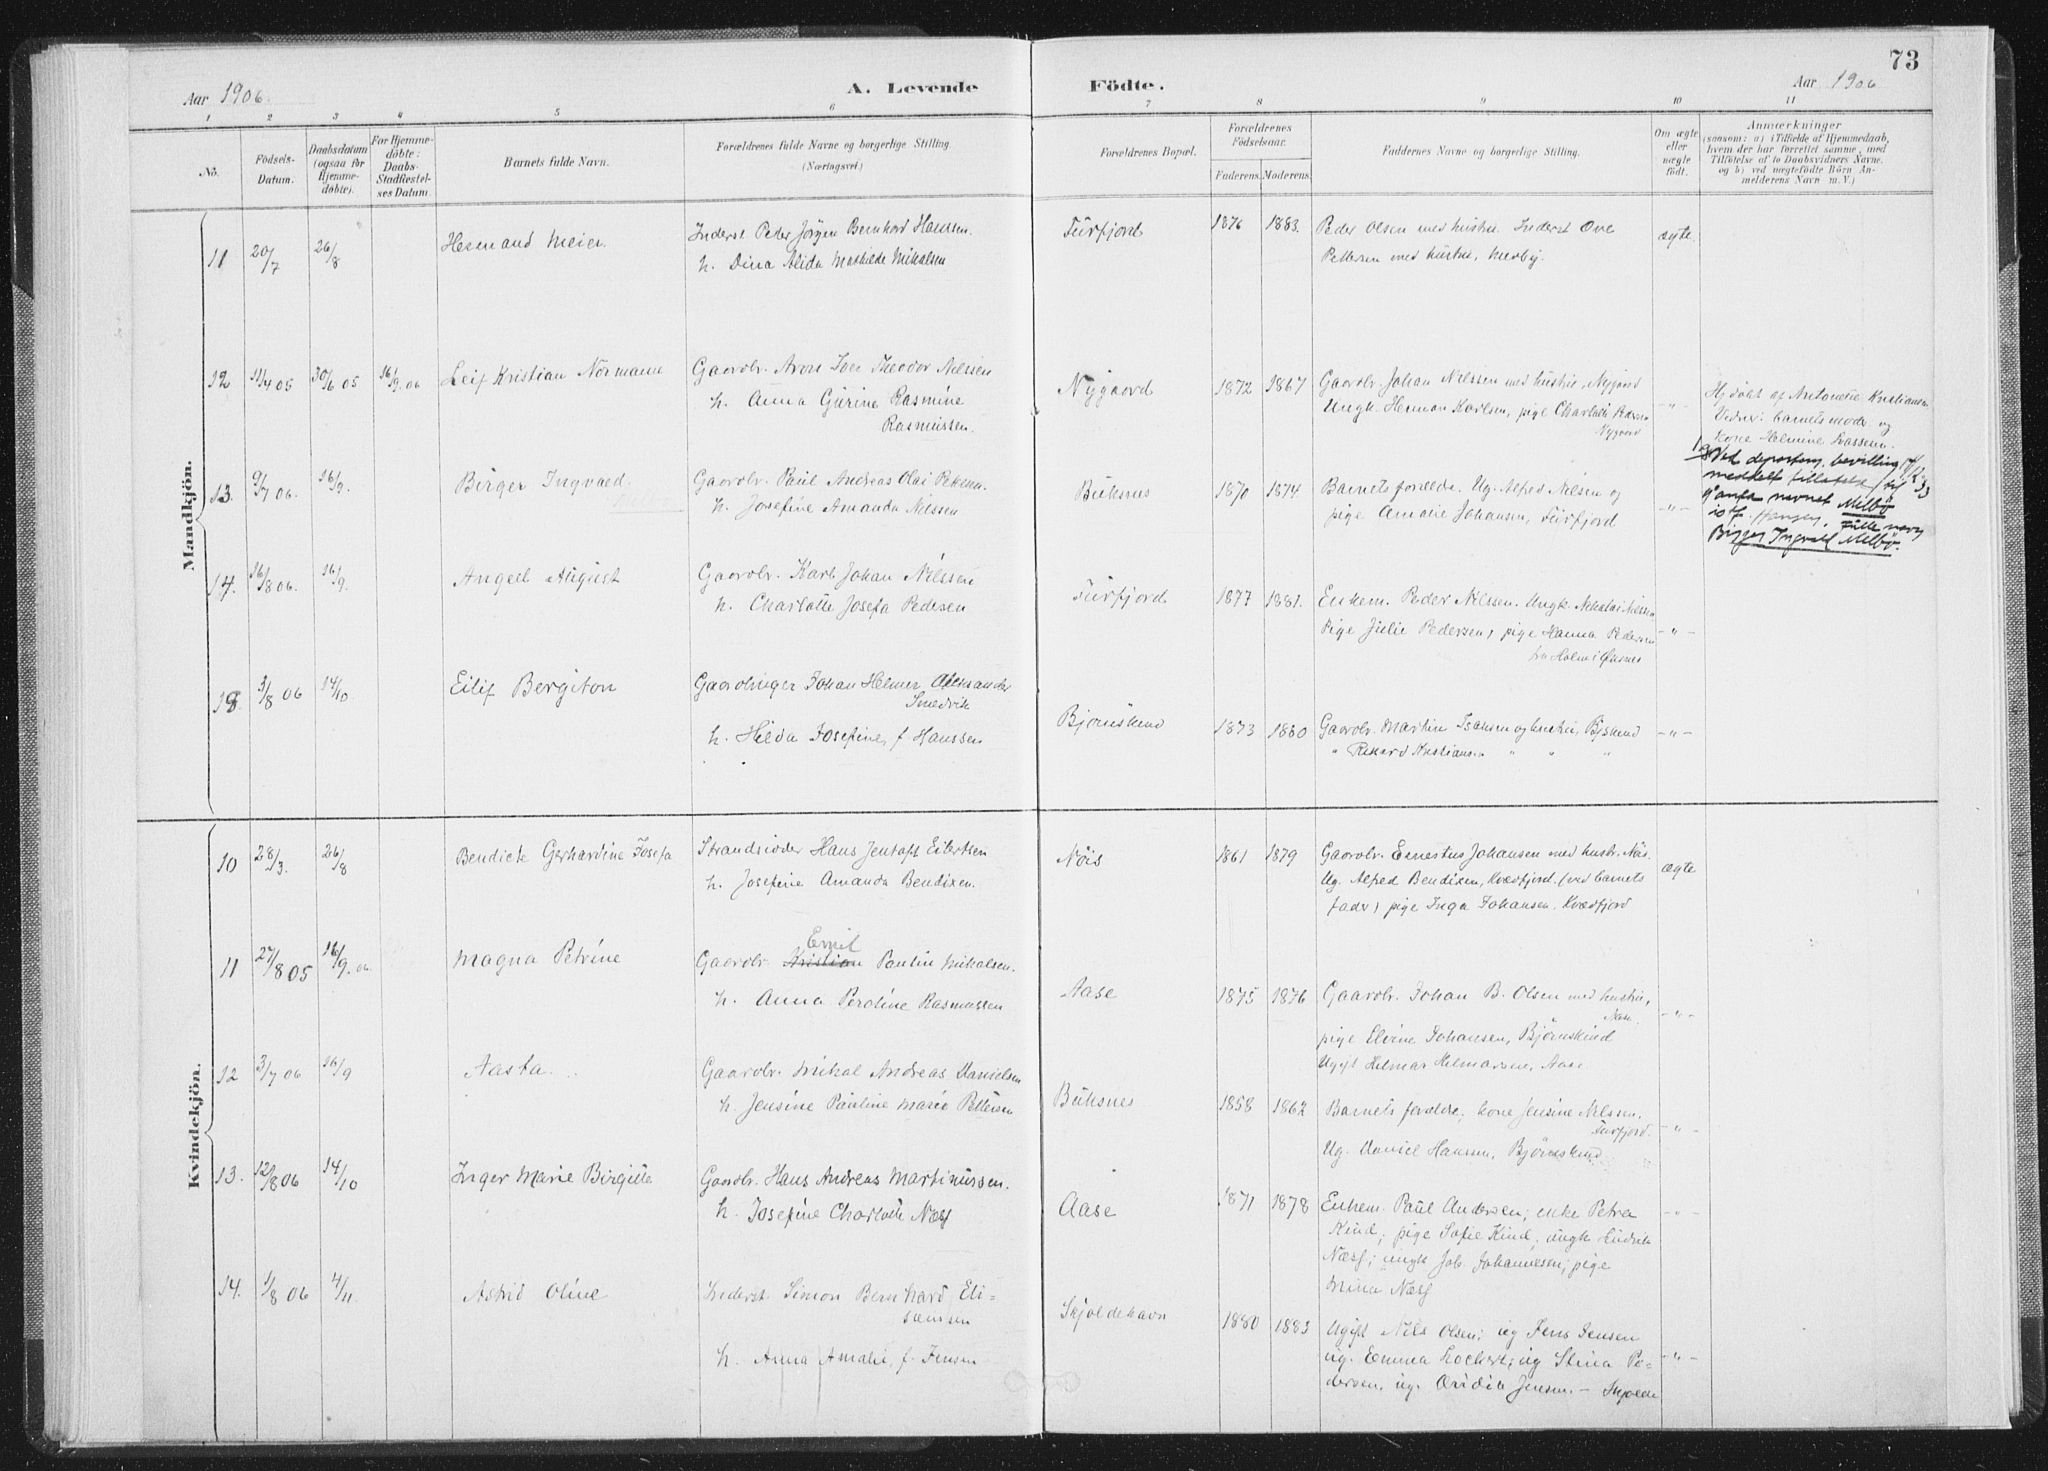 73
Aar 1906.
A. Levende
Födte.
Aar 1906
1 2 3 4 5 6 7 8 9 10 11
No.
Födsels-
Datum.
Daabsdatum
(ogsaa for
Hjemme-
döbte).
For Hjemme-
döbte:
Daabs-
Stadfæstel-
ses Datum.
Barnets fulde Navn.
Forældrenes fulde Navne og borgerlige Stilling.
(Næringsvei.)
Forældrenes Bopæl.
Forældrenes
Födselsaar.
Faderens. Moderens.
Faddernes Navne og borgerlige Stilling.
Om ægte
eller
uægte
födt.
Anmærkninger
(saasom: a) i Tilfælde af Hjemmedaab,
hvem der har forrettet samme, med
Tilföielse af to Daabsvidners Navne.
og b) ved uægtefödte Börn An-
melderens Navn m. V.)
Mandkjön.
11 20/7 26/8 Hermand Meier
Inderst Peder Jörgen Bernhard Hanssen
h. Dina Alida Mathilde Mikalsen
Turfjord 1876 1883.
Peder Olsen med hustru. Inderst Ove
Pettersen med hustru, Medby.
ægte.
12 11/4 05 30/6 05 16/9. 06 Leif Kristian Normann
Gaardbr. Aron Iver Theodor Nilssen
h. Anna Gurine Rasmine
Rasmussen.
Nygaard 1872 1867
Gaardbr. Johan Nilssen med hustru, Nygård
Ungk. Herman Karlsen, pige Charlotte
Nygaard
-"-
Hj.döbt af Antonette Kristiansen
Vidner: barnets moder og
kone Helmine Lassesen.
13. 9/7 06. 16/9. Birger Ingvard
Gaardbr. Paul Andreas Olai
h. Josefine Amanda Nilssen
Buksnes 1870 1874
Barnets forældre. Ug. Alfred Nilsen og
pige Amalie Johansen, Turfjord
-"-
Ved departem. bevilling
meddelt tilladelse til
at anta navnet Melbö
istf. Hansen. Fulle navn
Birger Ingvald Melbö.
14. 16/8 06. 16/9. Angell August
Gaardbr. Karl Johan Nilssen
h. Charlotte Josefa Pedersen
Turfjord 1877 1881.
Enkem. Peder Nilssen. Ungk. Nikolai Nilssen
Pige Julie Pedersen, pige Hanna Pedersen
fra Holm i Öksnes
-"-
15. 3/8 06 14/10 Eilif Bergiton
Gaardbruger Johan Helmer Aleksander
Smedvik
h. Hilda Josefine, f. Hanssen
Björnskind 1873 1860
Gaardbr. Martin Isaksen og hustru, Bjskind
" Rikard Kristiansen " " "
-"-
Kvindekjön.
10 28/3. 26/8 Bendicte Gerhardine Josefa
Strandsidder Hans Jentoft Eilertsen
h. Josefine Amanda Bendixen.
Nöis 1861 1879
Gaardbr. Ernestus Johansen med hustr. Nöis.
Ug. Alfred Bendixen, Kvædfjord. (ved barnets
fader) pige Inga Johansen. Kvædfjord
ægte
11 27/8 05 16/9. 06. Magna Petrine
Emil
Gaardbr. Kristian Paulin Mikalsen.
h. Anna Peroline Rasmussen
Aase 1875 1876
Gaardbr. Johan B. Olsen med hustru,
Aase.
pige Elvine Johansen, Björnskind
Ugift Helmar Helmersen, Aase
-"-
12 3/7 06 16/9 Aasta
Gaardbr. Mikal Andreas Danielsen
h. Jensine Pauline Marie Pettersen
Buksnes 1858 1862
Barnets forældre, kone Jensine Nilssen,
Turfjord.
Ug. Daniel Hansen, Björnskind
-"-
13. 12/8 06 14/10 Inger Marie Birgitte
Gaardbr. Hans Andreas Martinussen.
h. Josefine Charlotte Næss
Aase 1871 1878
Enkem. Paul Andersen; enke Petra
Kind; pige Sofie Kind; ungk. Hendrik
Næss; ungk. Joh. Johannesen; pige
Mina Næss
-"-
14. 1/8 06 4/11 Astrid Oline
Inderst. Simon Bernhard Eli-
sæussen
h. Anna Amalie, f. Jensen
Skjoldehavn 1880 1883
Ugift Nils Olsen; ug. Jens Jensen
ug. Emma Lochert; ug. Stina Pe-
dersen, ug. Ovidia Jensen. - Skjolde
-"-